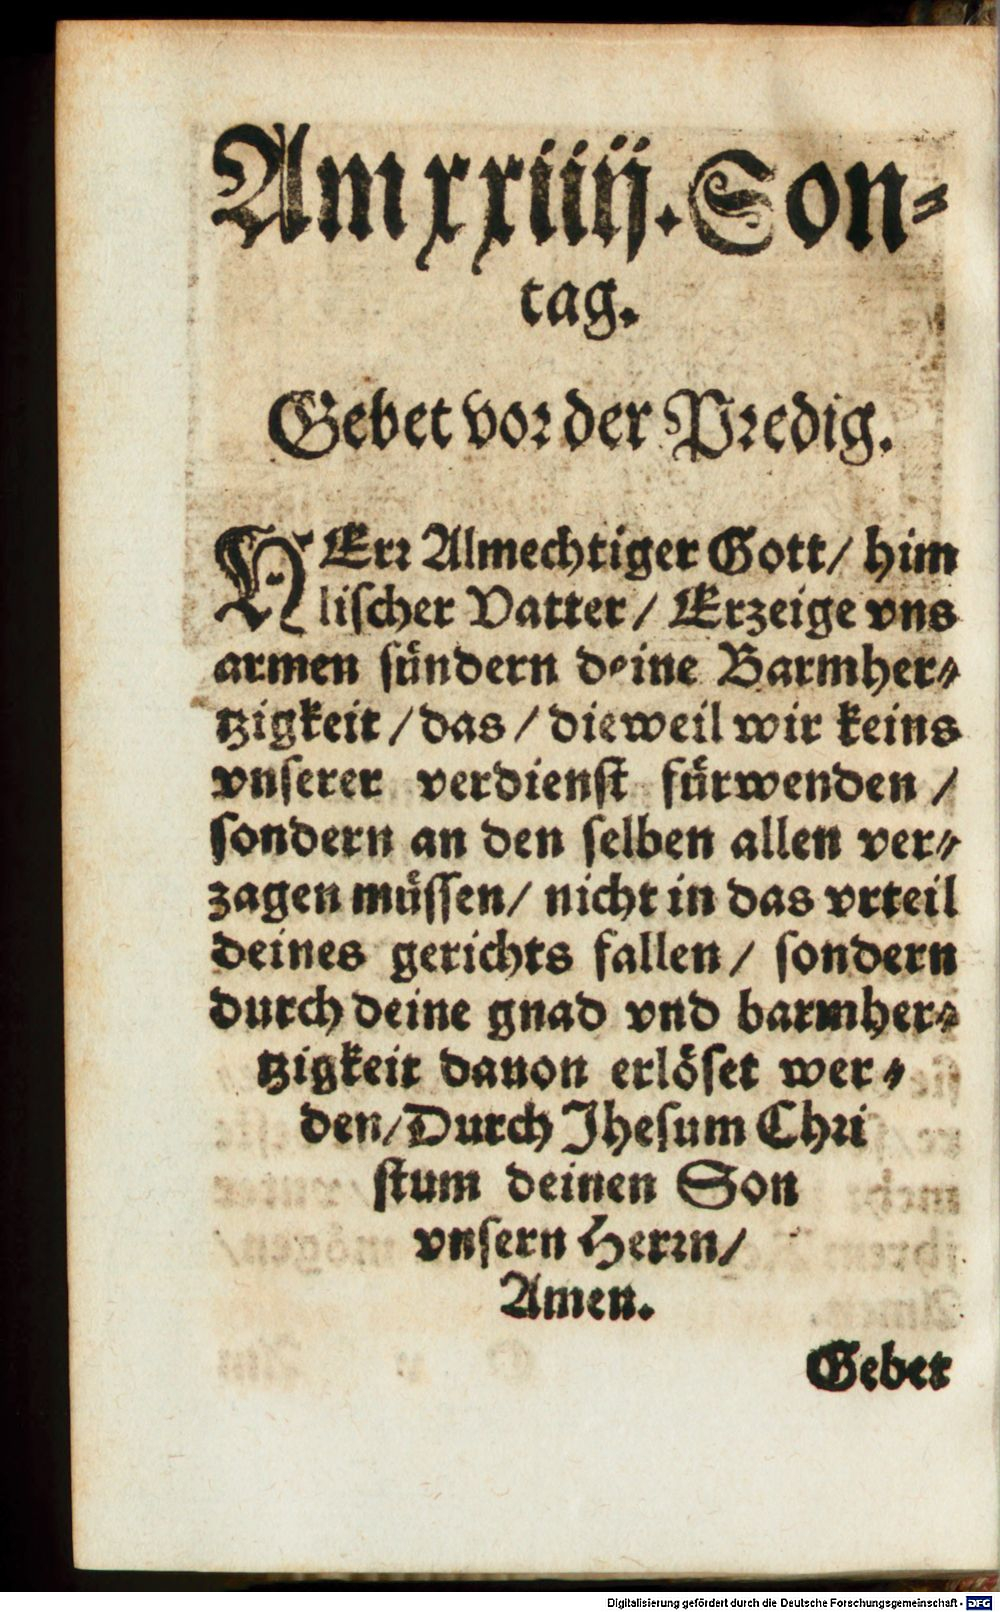 Am xxiiij. Son⸗
tag.
Gebet vor der Predig.
HErr Almechtiger Gott/ him
lischer Vatter/ Erzeige vns
armen sündern deine Barmher⸗
tzigkeit/ das/ dieweil wir keins
vnserer verdienst fürwenden/
sondern an den selben allen ver⸗
zagen müssen/ nicht in das vrteil
deines gerichts fallen/ sondern
durch deine gnad vnd barmher⸗
tzigkeit dauon erlöset wer⸗
den/ Durch Jhesum Chri
stum deinen Son
vnsern Herrn/
Amen.
Gebet
Digitalisierung gefördert durch die Deutsche Forschungsgemeinschaft - DFG